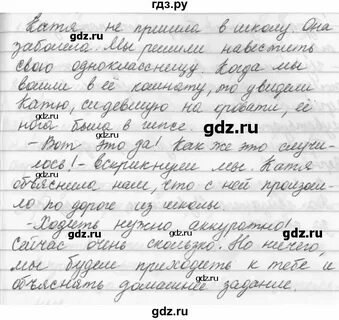 Катя не пришла в школу. Она
заболела. Мы решили навестить
свою одноклассницу. Когда мы
вошли в её комнату, то увидели
Катю, сидевшую на кровати, её
нога была в гипсе.
gdz.ru
gdz.ru
- Вот это да! Как же это случи-
лось! - вскрикнули мы. Катя
объяснила нам, что с ней произош-
ло по дороге из школы.
gdz.ru
gdz.ru
- Ходить нужно аккуратно!
сейчас очень скользко. Но ничего,
мы будем приходить к тебе и
объяснять домашнее задание.
gdz.ru
gdz.ru